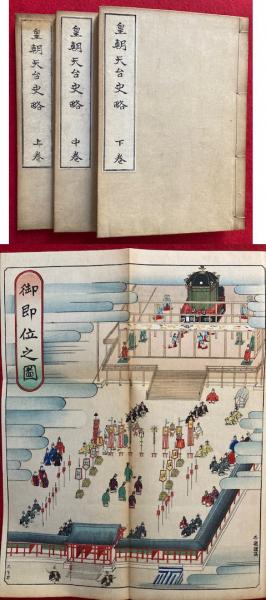 皇朝天台史略 上卷
皇朝天台史略 中卷
皇朝天台史略 下卷
御即位之圖